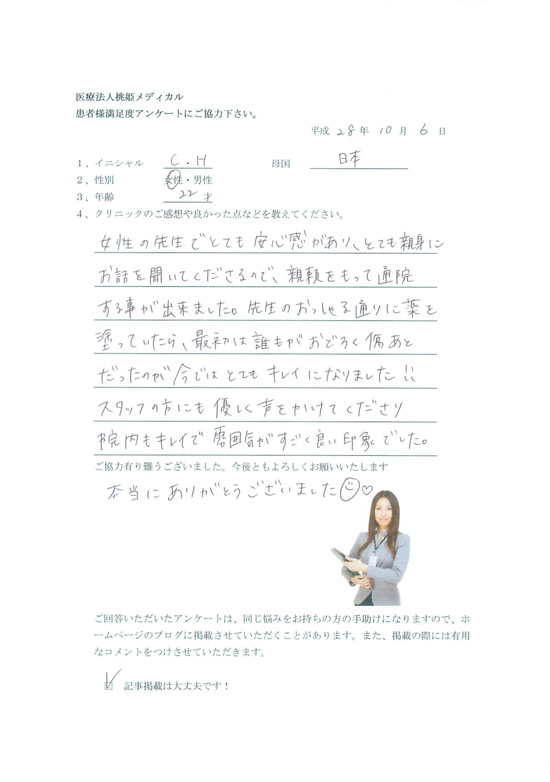 医療法人桃姫メディカル
患者様満足度アンケートにご協力下さい。
平成 28 年 10 月 6 日
1、イニシャル C.H 母国 日本
2、性別 女性・男性
3、年齢 22 才
4、クリニックのご感想や良かった点などを教えてください。
女性の先生でとても安心感があり、とても親身に
お話を聞いてくださるので、親頼をもって通院
する事が出来ました。先生のおっしゃる通りに薬を
塗っていたら、最初は誰もがおどろく傷あと
だったのが今ではとてもキレイになりました!!
スタッフの方にも優しく声をかけてくださり
院内もキレイで雰囲気がすごく良い印象でした。
ご協力有り難うございました。今後ともよろしくお願いいたします
本当にありがとうございました☺♡
ご回答いただいたアンケートは、同じ悩みをお持ちの方の手助けになりますので、ホ
ームページのブログに掲載させていただくことがあります。また、掲載の際には有用
なコメントをつけさせていただきます。
☑ 記事掲載は大丈夫です!